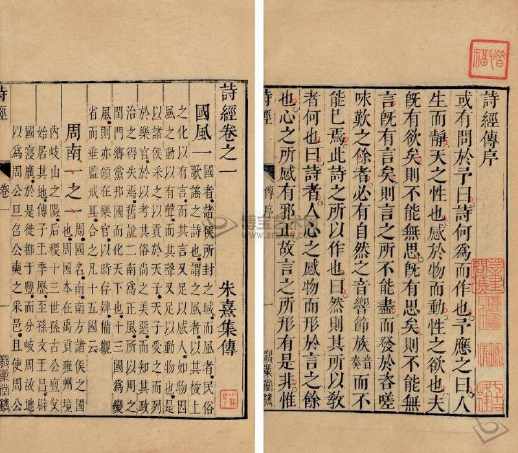 詩經傳序
或有問於予曰詩何為而作也予應之曰人
生而靜天之性也感於物而動性之欲也夫
既有欲矣則不能無思既有思矣則不能無
言既有言矣則言之所不能盡而發於咨嗟
咏歎之餘者必有自然之音響節族音奏而不
能已焉此詩之所以作也曰然則其所以教
者何也曰詩者人心之感物而形於言之餘
也心之所感有邪正故言之所形有是非惟
詩經 傳序
詩經卷之一
朱熹集傳
國風一
國者諸侯所封之域而風者民俗
歌謠之詩也謂之風者以其被上
之化以有言而其言又足以感人如物因
風之動以有聲而其聲又足以動物也是
以諸侯采之以貢於天子天子受之而列
於樂官於以考其俗尚之美惡而知其政
治之得失焉舊說二南為正風所以用之
閨門鄉黨邦國而化天下也十三國為變
風則亦領在樂官以時存肄備觀
省而垂監戒耳合之凡十五國云
周南一之一
周國名南南方諸侯之國
也周國本在禹貢雍州境
內岐山之陽后稷十三世孫古公亶父
始居其地傳子王季歷至孫文王昌辟
國寖廣於是徙都于豐而分岐周故地
以為周公旦召公奭之采邑且使周公
詩經 卷一